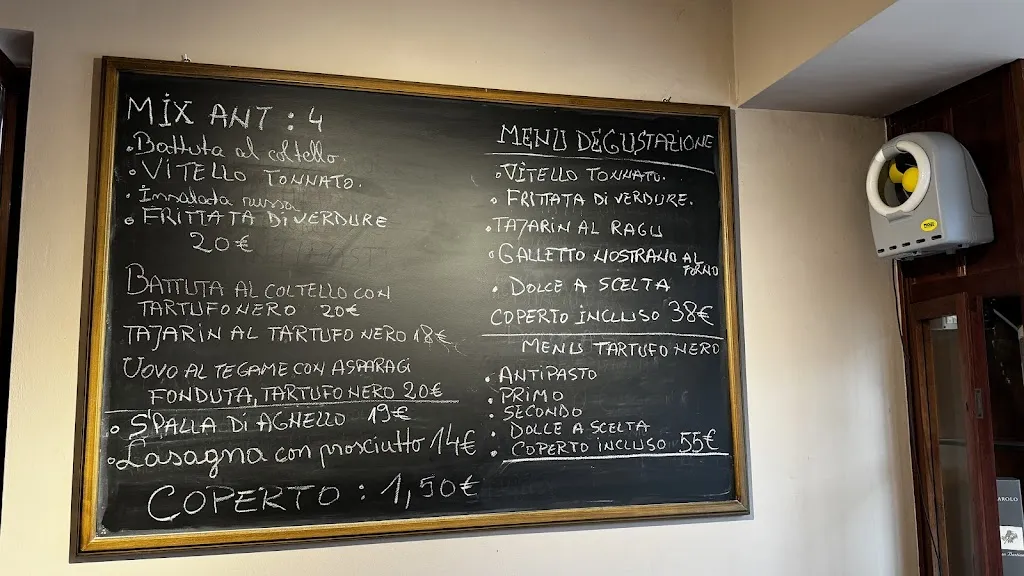 MIX ANT : 4
• Battuta al coltello.
• VITELLO TONNATO.
• Insalata russa
• FRITTATA DI VERDURE
20€
BATTUTA AL COLTELLO CON
TARTUFO NERO 20€
TAJARIN AL TARTUFO NERO 18€
UOVO AL TEGAME CON ASPARAGI
FONDUTA, TARTUFO NERO 20€
• SPALLA DI AGNELLO 19€
• Lasagna con prosciutto 14€
COPERTO : 1,50€
MENU DEGUSTAZIONE
• VITELLO TONNATO.
• FRITTATA DI VERDURE.
• TAJARIN AL RAGU
• GALLETTO NOSTRANO AL
FORNO
• DOLCE A SCELTA
COPERTO INCLUSO 38€
MENU TARTUFO NERO
• ANTIPASTO
• PRIMO
• SECONDO
DOLCE A SCELTA
• COPERTO INCLUSO 55€
AROLO